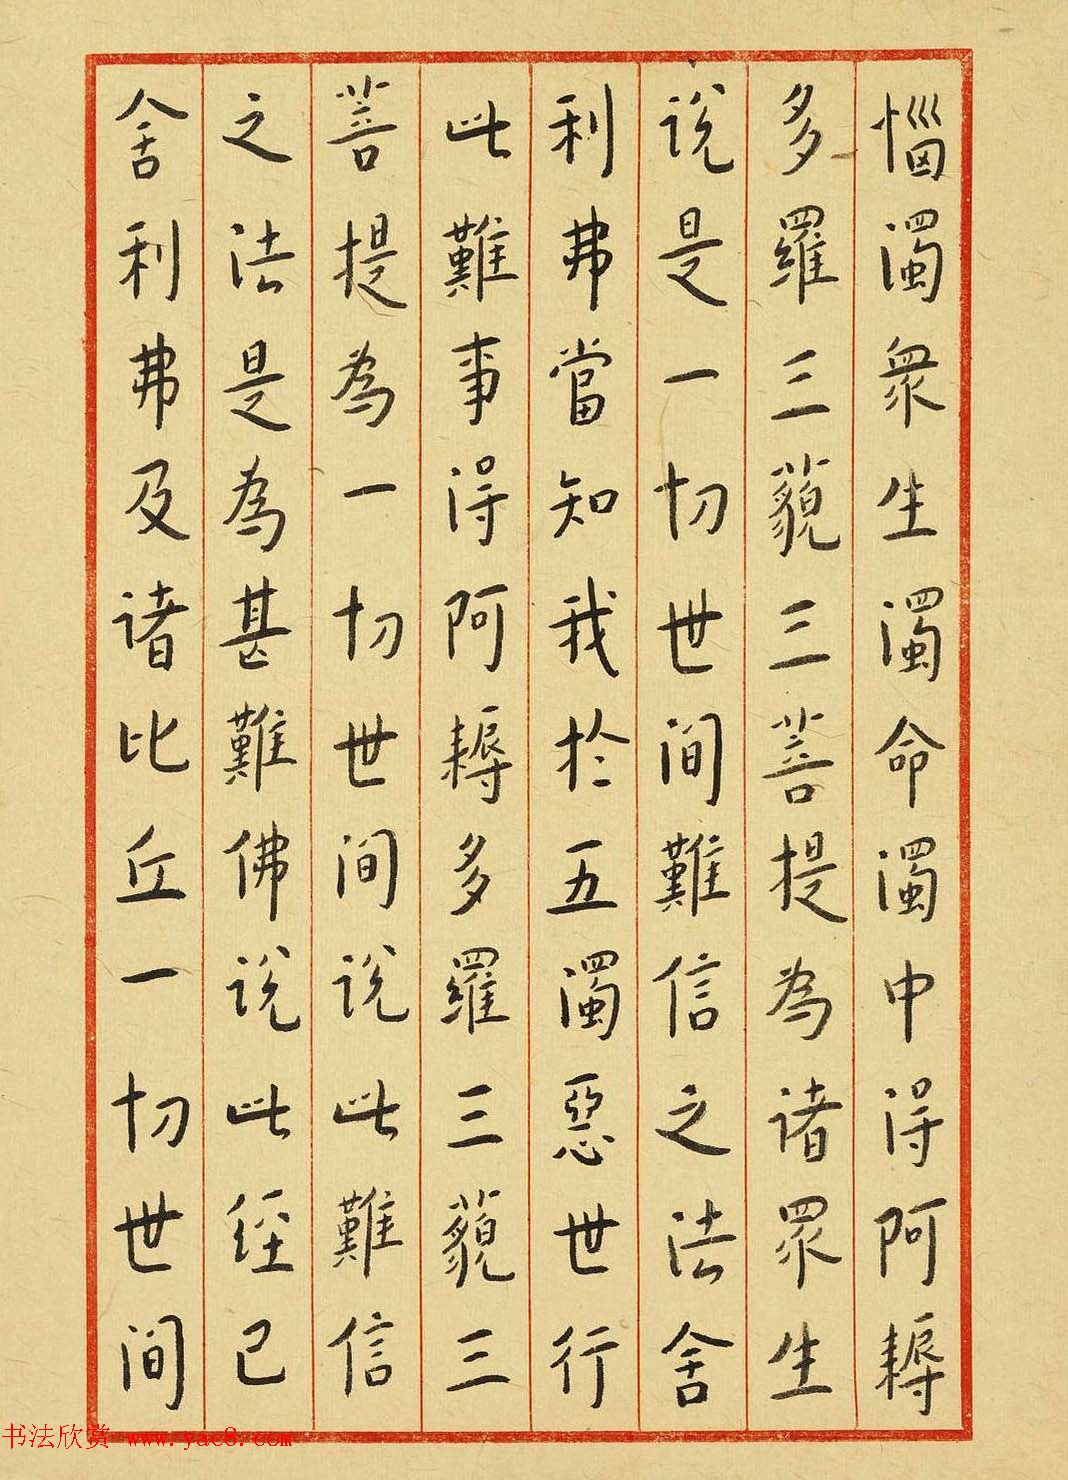 惱濁衆生濁命濁中得阿耨
多羅三藐三菩提為諸眾生
說是一切世間難信之法舍
利弗當知我於五濁惡世行
此難事得阿耨多羅三藐三
菩提為一切世間說此難信
之法是為甚難佛說此經已
舍利弗及諸比丘一切世間
书法欣赏 www.yac8.com